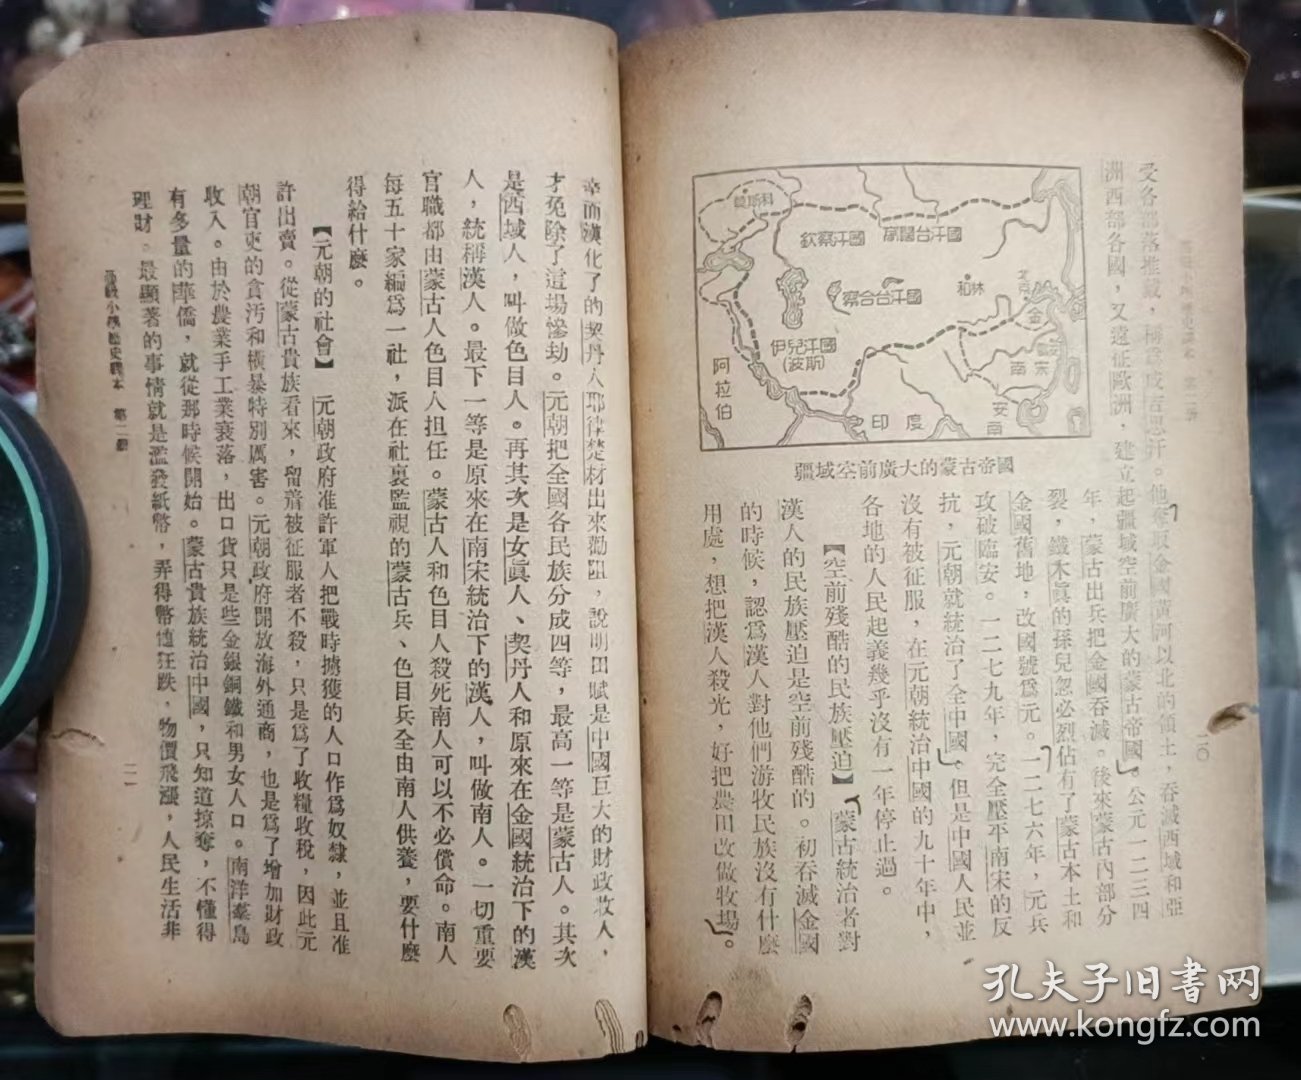 受各部落推戴，稱爲成吉思汗。他奪取金國黃河以北的領土，吞滅西域和亞
洲西部各國，又遠征歐洲，建立起疆域空前廣大的蒙古帝國。公元一二三四
年，蒙古出兵把金國吞滅。後來蒙古內部分
裂，鐵木眞的孫兒忽必烈佔有了蒙古本土和
金國舊地，改國號爲元。一二七六年，元兵
攻破臨安。一二七九年，完全壓平南宋的反
抗，元朝就統治了全中國。但是中國人民並
沒有被征服，在元朝統治中國的九十年中，
各地的人民起義幾乎沒有一年停止過。
【空前殘酷的民族壓迫】 蒙古統治者對
漢人的民族壓迫是空前殘酷的。初吞滅金國
的時候，認爲漢人對他們游牧民族沒有什麼
用處，想把漢人殺光，好把農田改做牧場。
莫斯科
欽察汗國
窩闊台汗國
察合台汗國
和林
金
伊兒汗國
(波斯)
阿拉伯
印度
南宋
安南
疆域空前廣大的蒙古帝國
二〇
幸而漢化了的契丹人耶律楚材出來勸阻，說明田賦是中國巨大的財政收入，
才免除了這場慘劫。元朝把全國各民族分成四等，最高一等是蒙古人。其次
是西域人，叫做色目人。再其次是女眞人、契丹人和原來在金國統治下的漢
人，統稱漢人。最下一等是原來在南宋統治下的漢人，叫做南人。一切重要
官職都由蒙古人色目人擔任。蒙古人和色目人殺死南人可以不必償命。南人
每五十家編爲一社，派在社裏監視的蒙古兵、色目兵全由南人供養，要什麼
得給什麼。
【元朝的社會】 元朝政府准許軍人把戰時擄獲的人口作爲奴隸，並且准
許出賣。從蒙古貴族看來，留着被征服者不殺，只是爲了收糧收稅，因此元
朝官吏的貪汚和橫暴特別厲害。元朝政府開放海外通商，也是爲了增加財政
收入。由於農業手工業衰落，出口貨只是些金銀銅鐵和男女人口。南洋羣島
有多量的華僑，就從那時候開始。蒙古貴族統治中國，只知道掠奪，不懂得
理財。最顯著的事情就是濫發紙幣，弄得幣值狂跌，物價飛漲，人民生活非
高級小學歷史課本 第二册
二一
孔夫子旧书网
www.kongfz.com